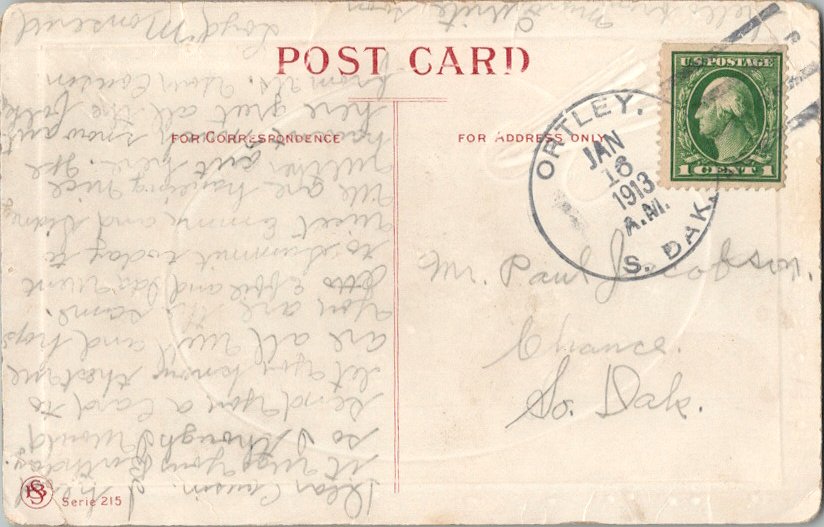 POST CARD
FOR CORRESPONDENCE
FOR ADDRESS ONLY
U.S. POSTAGE
1 CENT 1
ORTLEY,
JAN
16
1913
A.M.
S. DAK.
Mr. Paul Jacobson.
Chance.
So. Dak.
Serie 215
Dear Cousin.
it was your birthday
so I though I would
send you a card to
let you know that we
are all well and hope
you are the same.
Effie and dad went
to Summit today to
meet Emma and
We are having nice
weather out here. We
have snow
here great all the folks
from us. your Cousin
Loyd